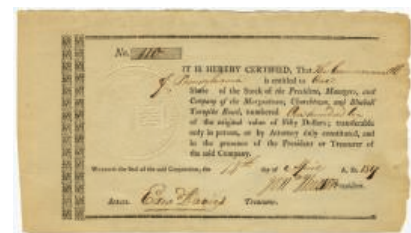 No. 110
IT IS HEREBY CERTIFIED, That the Commonwealth
of Pennsylvania is entitled to One
Share of the Stock of the President, Managers, and
Company of the Morgantown, Churchtown, and Blueball
Turnpike Road, numbered One hundred ten
of the original value of Fifty Dollars; transferable
only in person, or by Attorney duly constituted, and
in the presence of the President or Treasurer of
the said Company.
Witness the Seal of the said Corporation, the day of April A. D. 18
President.
Attest. Edw Davies Treasurer.